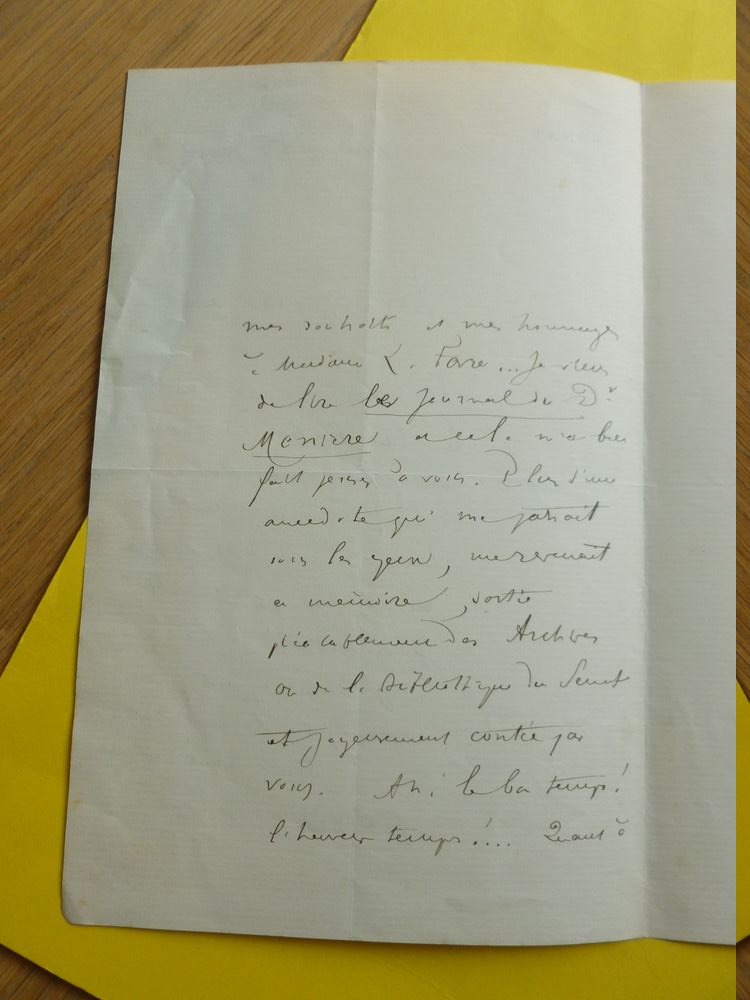 mes souhaits et mes hommages
à Madame L. Favre... Je viens
de lire le Journal du Dr
Menière et cela m'a bien
fait penser à vous. Plus d'une
anecdote qui me passait
sous les yeux, me revenait
en mémoire, sortie
préalablement des Archives
ou de la Bibliothèque du Sénat
et joyeusement contée par
vous. Ah! le bon temps!
l'heureux temps!... Quant à